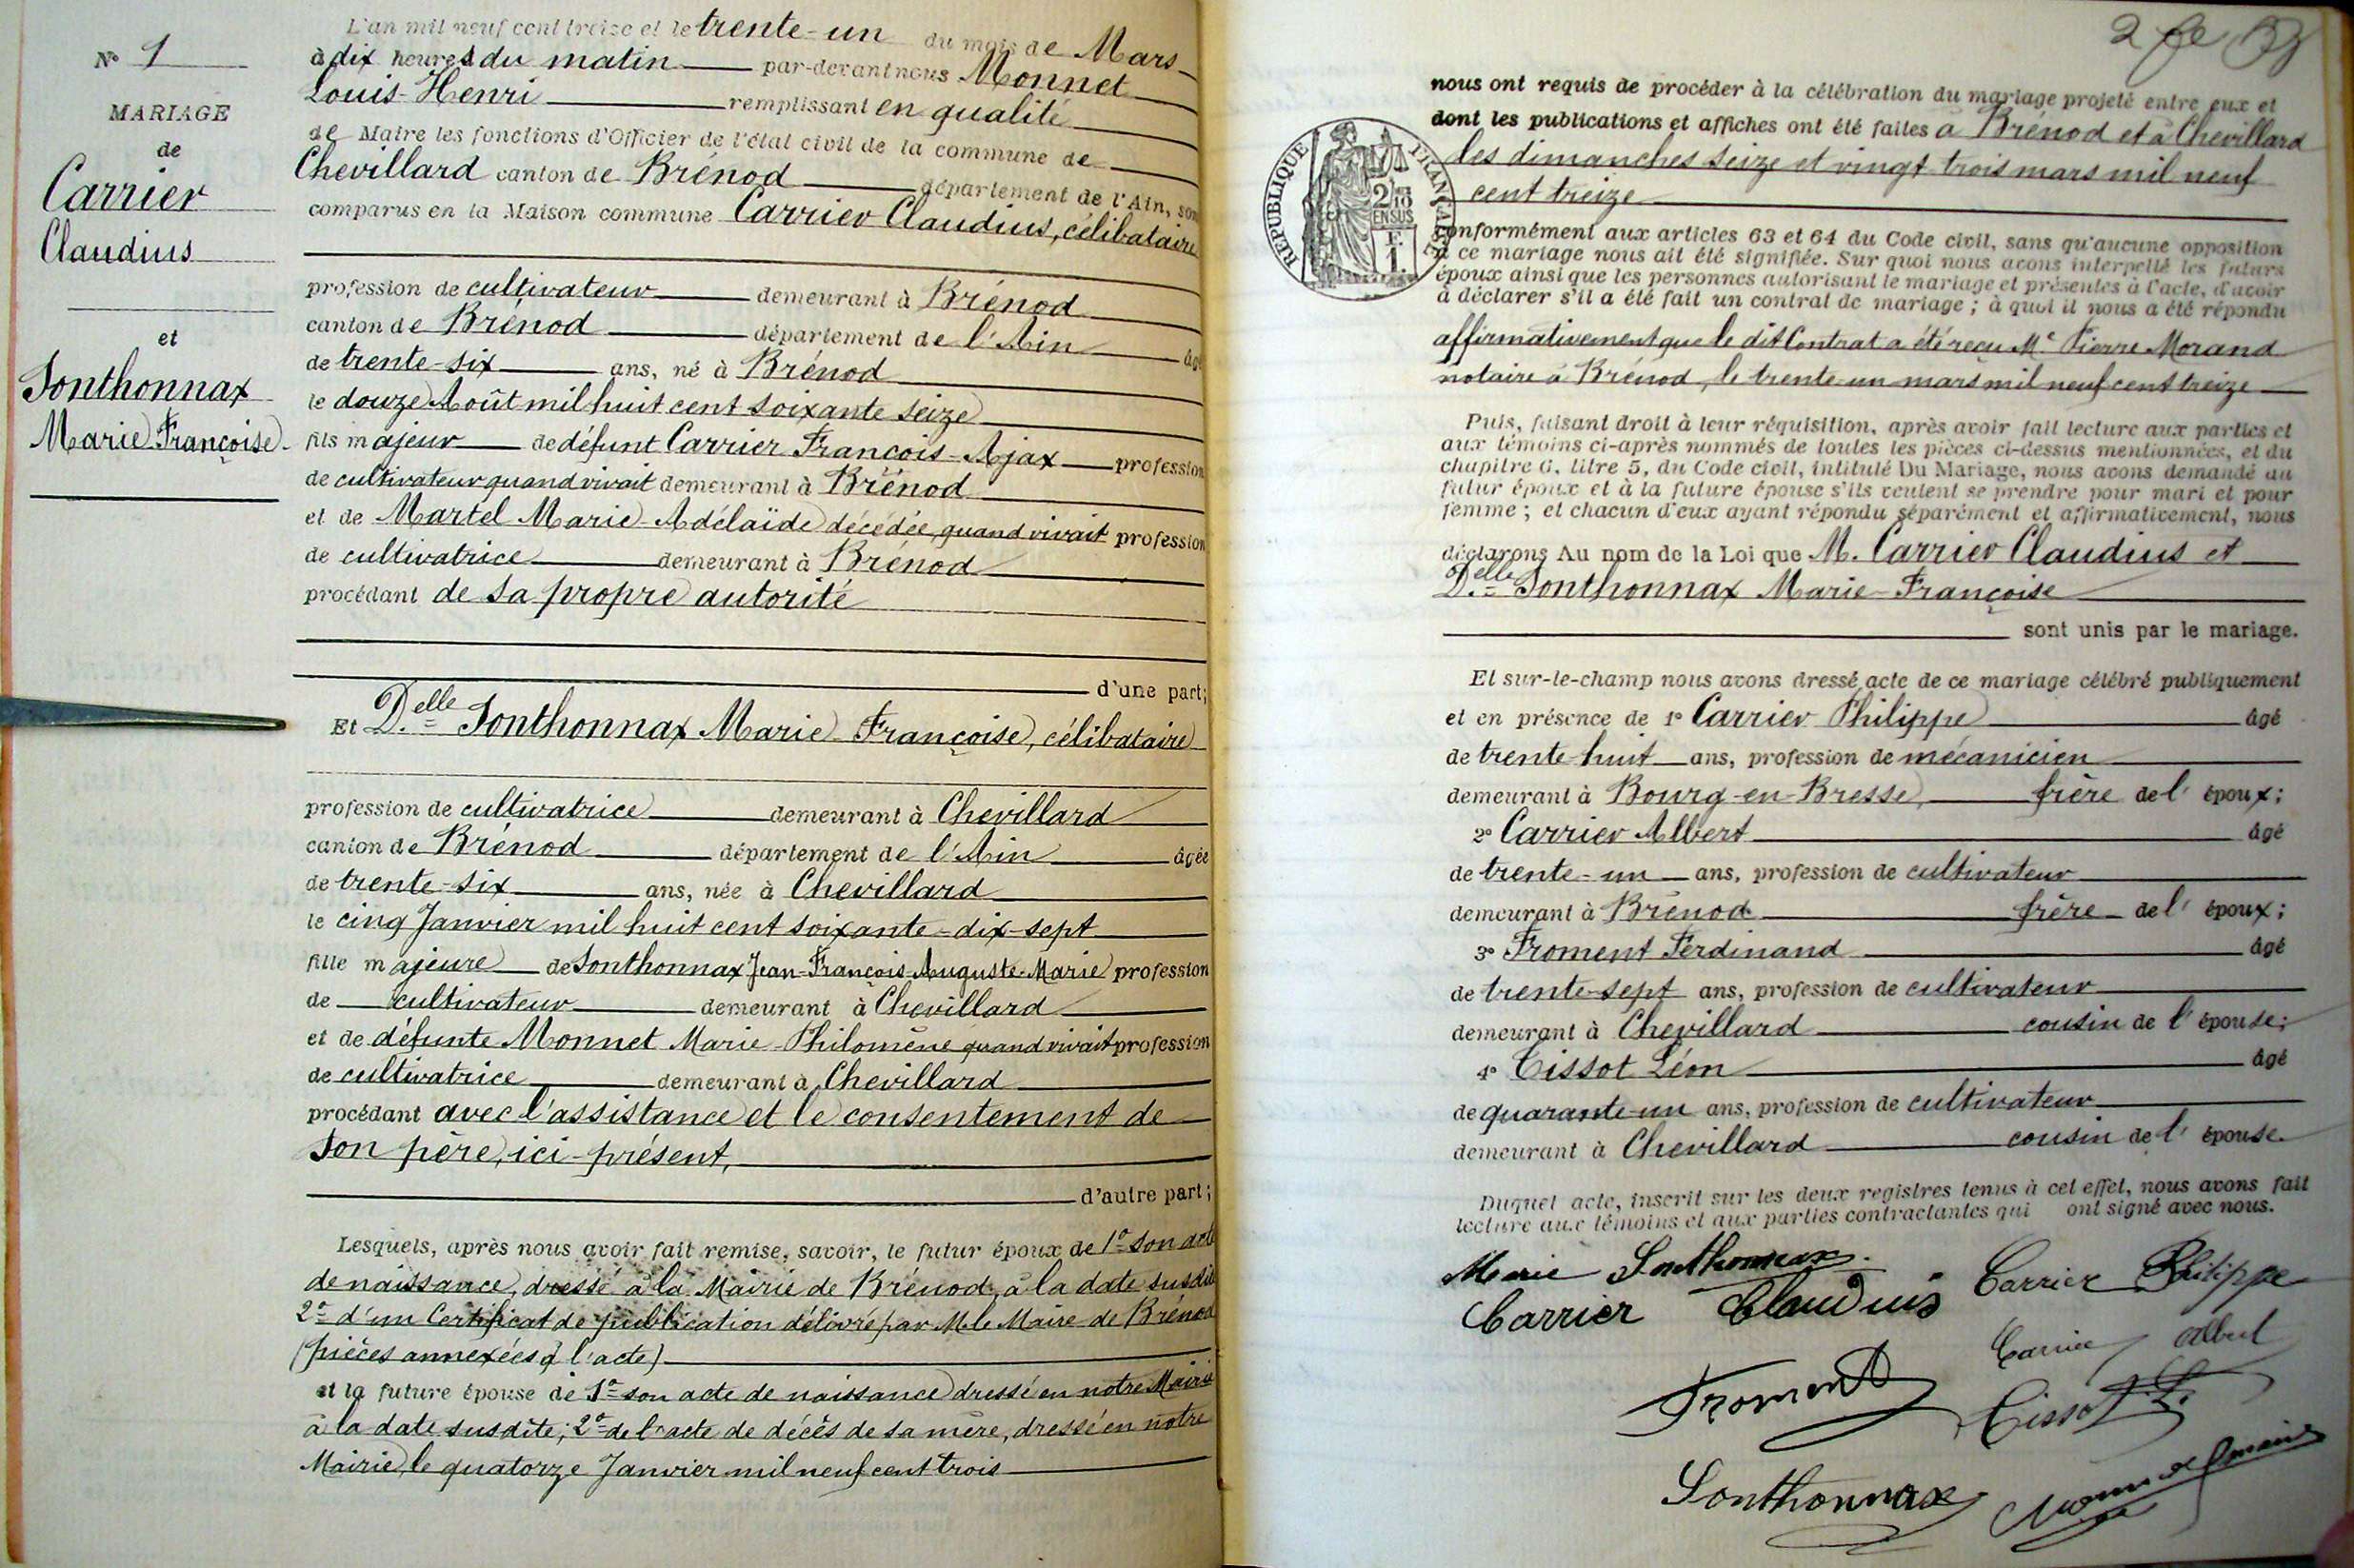 N° 1
MARIAGE
de
Carrier
Claudius
et
Sonthonnax
Marie Françoise
L'an mil neuf cent treize et le trente-un du mois de Mars
à dix heures du matin par-devant nous Monnet
Louis-Henri remplissant en qualité
de Maire les fonctions d'Officier de l'état civil de la commune de
Chevillard canton de Brénod département de l'Ain, son
comparus en la Maison commune Carrier Claudius, célibataire
profession de cultivateur demeurant à Brénod
canton de Brénod département de l'Ain âgé
de trente-six ans, né à Brénod
le douze Août mil huit cent soixante seize
fils majeur de défunt Carrier François-Ajax profession
de cultivateur quand vivait demeurant à Brénod
et de Martel Marie-Adélaïde décédée, quand vivait profession
de cultivatrice demeurant à Brénod
procédant de sa propre autorité
d'une part;
Et Delle Sonthonnax Marie Françoise, célibataire
profession de cultivatrice demeurant à Chevillard
canton de Brénod département de l'Ain âgée
de trente-six ans, née à Chevillard
le cinq Janvier mil huit cent soixante-dix-sept
fille majeure de Sonthonnax Jean-François-Auguste-Marie profession
de cultivateur demeurant à Chevillard
et de défunte Monnet Marie Philomène quand vivait profession
de cultivatrice demeurant à Chevillard
procédant avec l'assistance et le consentement de
son père, ici-présent,
d'autre part;
Lesquels, après nous avoir fait remise, savoir, le futur époux de 1° son acte
de naissance, dressé à la Mairie de Brénod, à la date susdite
2° d'un Certificat de publication délivré par M. le Maire de Brénod
(pièces annexées à l'acte)
et la future épouse de 1° son acte de naissance dressé en notre Mairie
à la date susdite; 2° de l'acte de décès de sa mère, dressé en notre
Mairie, le quatorze Janvier mil neuf cent trois
nous ont requis de procéder à la célébration du mariage projeté entre eux et
dont les publications et affiches ont été faites à Brénod et à Chevillard
les dimanches seize et vingt trois mars mil neuf
cent treize
RÉPUBLIQUE FRANÇAISE
conformément aux articles 63 et 64 du Code civil, sans qu'aucune opposition
à ce mariage nous ait été signifiée. Sur quoi nous avons interpellé les futurs
époux ainsi que les personnes autorisant le mariage et présentes à l'acte, d'avoir
à déclarer s'il a été fait un contrat de mariage; à quoi il nous a été répondu
affirmativement que le dit Contrat a été reçu Me Pierre Morand
notaire à Brénod, le trente-un mars mil neuf cent treize
Puis, faisant droit à leur réquisition, après avoir fait lecture aux parties et
aux témoins ci-après nommés de toutes les pièces ci-dessus mentionnées, et du
chapitre 6, titre 5, du Code civil, intitulé Du Mariage, nous avons demandé au
futur époux et à la future épouse s'ils veulent se prendre pour mari et pour
femme; et chacun d'eux ayant répondu séparément et affirmativement, nous
déclarons Au nom de la Loi que M. Carrier Claudius et
Delle Sonthonnax Marie-Françoise
sont unis par le mariage.
Et sur-le-champ nous avons dressé acte de ce mariage célébré publiquement
et en présence de 1° Carrier Philippe âgé
de trente-huit ans, profession de mécanicien
demeurant à Bourg-en-Bresse, frère de l'époux;
2° Carrier Albert âgé
de trente-un ans, profession de cultivateur
demeurant à Brénod frère de l'époux;
3° Froment Ferdinand âgé
de trente-sept ans, profession de cultivateur
demeurant à Chevillard cousin de l'épouse;
4° Tissot Léon âgé
de quarante-un ans, profession de cultivateur
demeurant à Chevillard cousin de l'épouse.
Duquel acte, inscrit sur les deux registres tenus à cet effet, nous avons fait
lecture aux témoins et aux parties contractantes qui ont signé avec nous.
Marie Sonthonnax
Carrier Claudius Carrier Philippe
Carrier Albert
Froment
Tissot L.
Sonthonnax